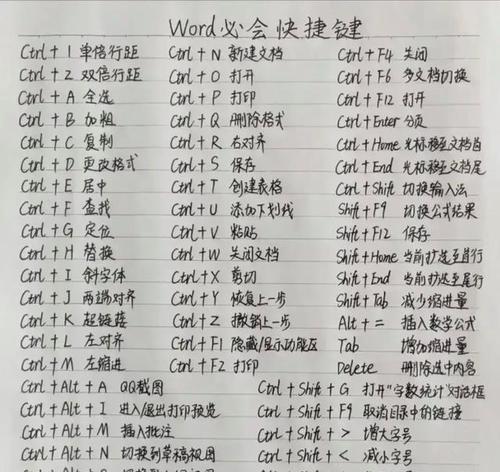 Word必会快捷键
Ctrl + 1 单倍行距 Ctrl + N 新建文档 Ctrl + F4 关闭
Ctrl + 2 双倍行距 Ctrl + O 打开 Ctrl + F6 多文档切换
Ctrl + A 全选 Ctrl + P 打印 Ctrl + F12 打开
Ctrl + B 加粗 Ctrl + Q 删除格式 Ctrl + Enter 分页
Ctrl + C 复制 Ctrl + R 右对齐 Ctrl + Home 光标移至文档首
Ctrl + D 更改格式 Ctrl + S 保存 Ctrl + End 光标移至文档尾
Ctrl + E 居中 Ctrl + T 创建表格 Ctrl + Shift 切换输入法
Ctrl + F 查找 Ctrl + U 添加下划线 Shift + F9 切换公式结果
Ctrl + G 定位 Ctrl + V 粘贴 Shift + F12 保存
Ctrl + H 替换 Ctrl + W 关闭文档 Shift + Home 当前扩选至首行
Ctrl + I 斜字体 Ctrl + X 剪切 Shift + End 当前扩选至尾行
Ctrl + J 两端对齐 Ctrl + Y 恢复上一步 Shift + Tab 减少缩进量
Ctrl + K 超链接 Ctrl + Z 撤销上一步 Alt + = 插入数学公式
Ctrl + L 左对齐 Ctrl + F1 隐藏/显示功能区 Tab 增加缩进量
Ctrl + M 左缩进 Ctrl + F2 打印 Delete 删除选中内容
Ctrl + Alt + A QQ截图 Ctrl + Shift + G 打开"字数统计"对话框
Ctrl + Alt + I 进入/退出打印预览 Ctrl + Shift + F9 取消目录中的链接
Ctrl + Alt + M 插入批注 Ctrl + Shift + > 增大字号
Ctrl + Alt + N 切换到草稿视图 Ctrl + Shift + < 减小字号